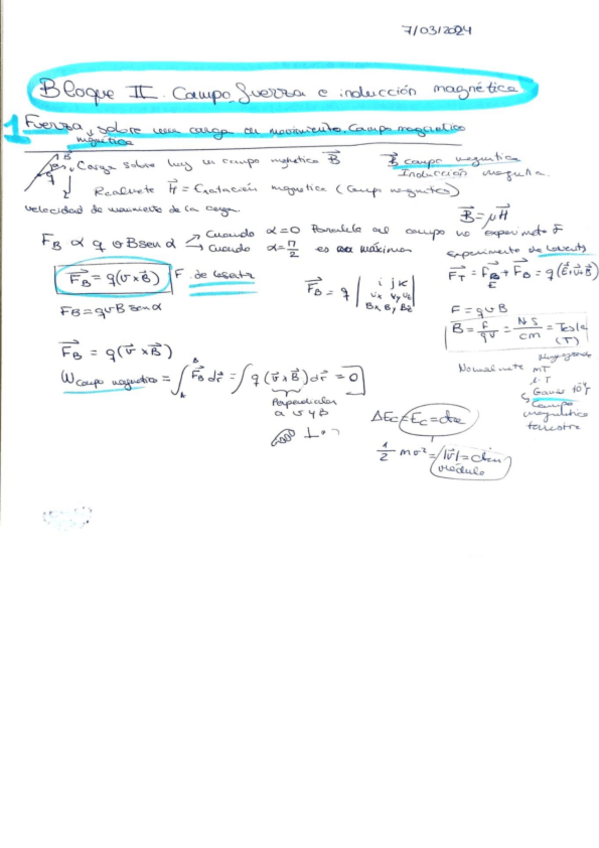 7/03/2024
Bloque II. Campo, fuerza e inducción magnética
1 Fuerza magnética sobre una carga en movimiento. Campo magnético
Carga sobre hay un campo magnético B⃗
B⃗ campo magnetico
Inducción magnetica.
Realmente H⃗ = Excitación magnetica (Campo magnetico)
velocidad de movimiento de la carga
B⃗ = μH⃗
F_B ∝ q v B sen α
Cuando α=0 Paralela al campo no experimenta F
Cuando α=π/2 es máxima
Experimento de Lorentz
F⃗_T = F⃗_E + F⃗_B = q(E⃗+v⃗×B⃗)
F⃗_B = q(v⃗×B⃗) F. de Lorentz
F⃗_B = q | i j k
v_x v_y v_z
B_x B_y B_z |
F_B = qvB sen α
F = qvB
B = F/qv = N·S/C·m = Tesla (T)
F⃗_B = q(v⃗×B⃗)
W campo magnetico = ∫_A^B F⃗_B dr⃗ = ∫ q(v⃗×B⃗)dr⃗ = 0
Perpendicular
a v y B
Normalmente mT
μT
Gauss 10⁻⁴T
Campo
magnético
terrestre
ΔEc = Ec = cte
1/2 mv² = |v| =
módulo